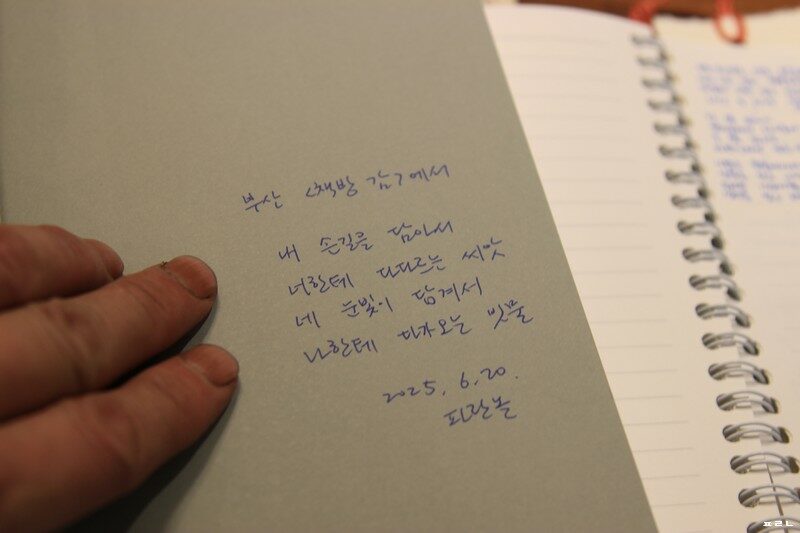 부산 <책방 감>에서
내 손길을 담아서
너한테 다다르는 씨앗
네 눈빛이 담겨서
나한테 다가오는 빗물
2025. 6. 20.
파란놀
ㅍㄹㄴ